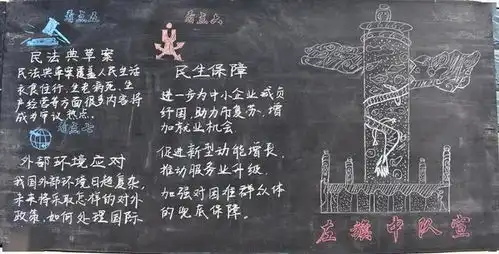 看点五
民法典草案
民法典草案覆盖人民生活
衣食住行、生老病死、生
产经营等方面很多内容将
成为审议热点。
看点七
外部环境应对
我国外部环境日趋复杂,
未来将采取怎样的对外
政策,如何处理国际
看点六
民生保障
进一步为中小企业减负
纾困,助力市复苏,增
加就业机会
促进新型动能增长,
推动服务业升级,
加强对困难群众体
的兜底保障。
左旗中队宣